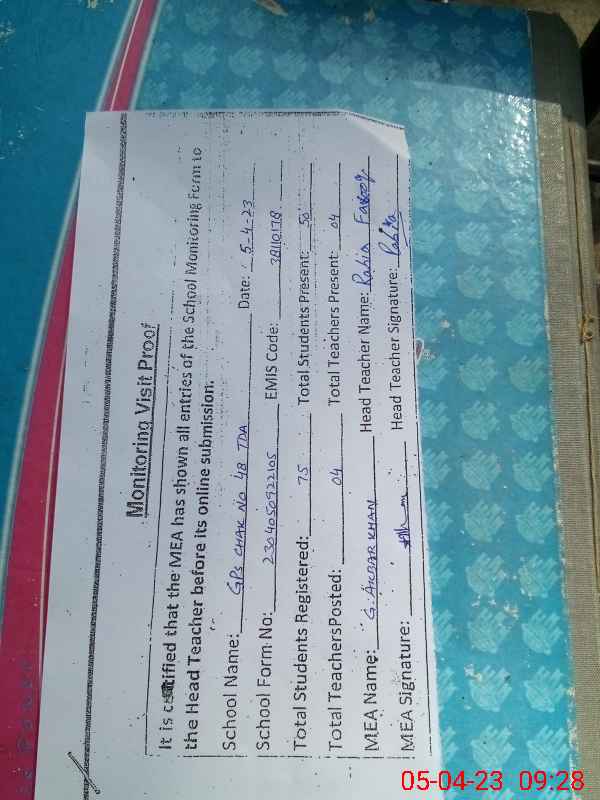 Monitoring Visit Proof
It is certified that the MEA has shown all entries of the School Monitoring Form to
the Head Teacher before its online submission.
School Name: GPS CHAK NO 48 TDA Date: 5-4-23
School Form No: 2304050922105 EMIS Code: 38110178
Total Students Registered: 75 Total Students Present: 50
Total Teachers Posted: 04 Total Teachers Present: 04
MEA Name: G. AKBAR KHAN Head Teacher Name: Rabia Farooq
MEA Signature: Head Teacher Signature: Rabia
05-04-23 09:28